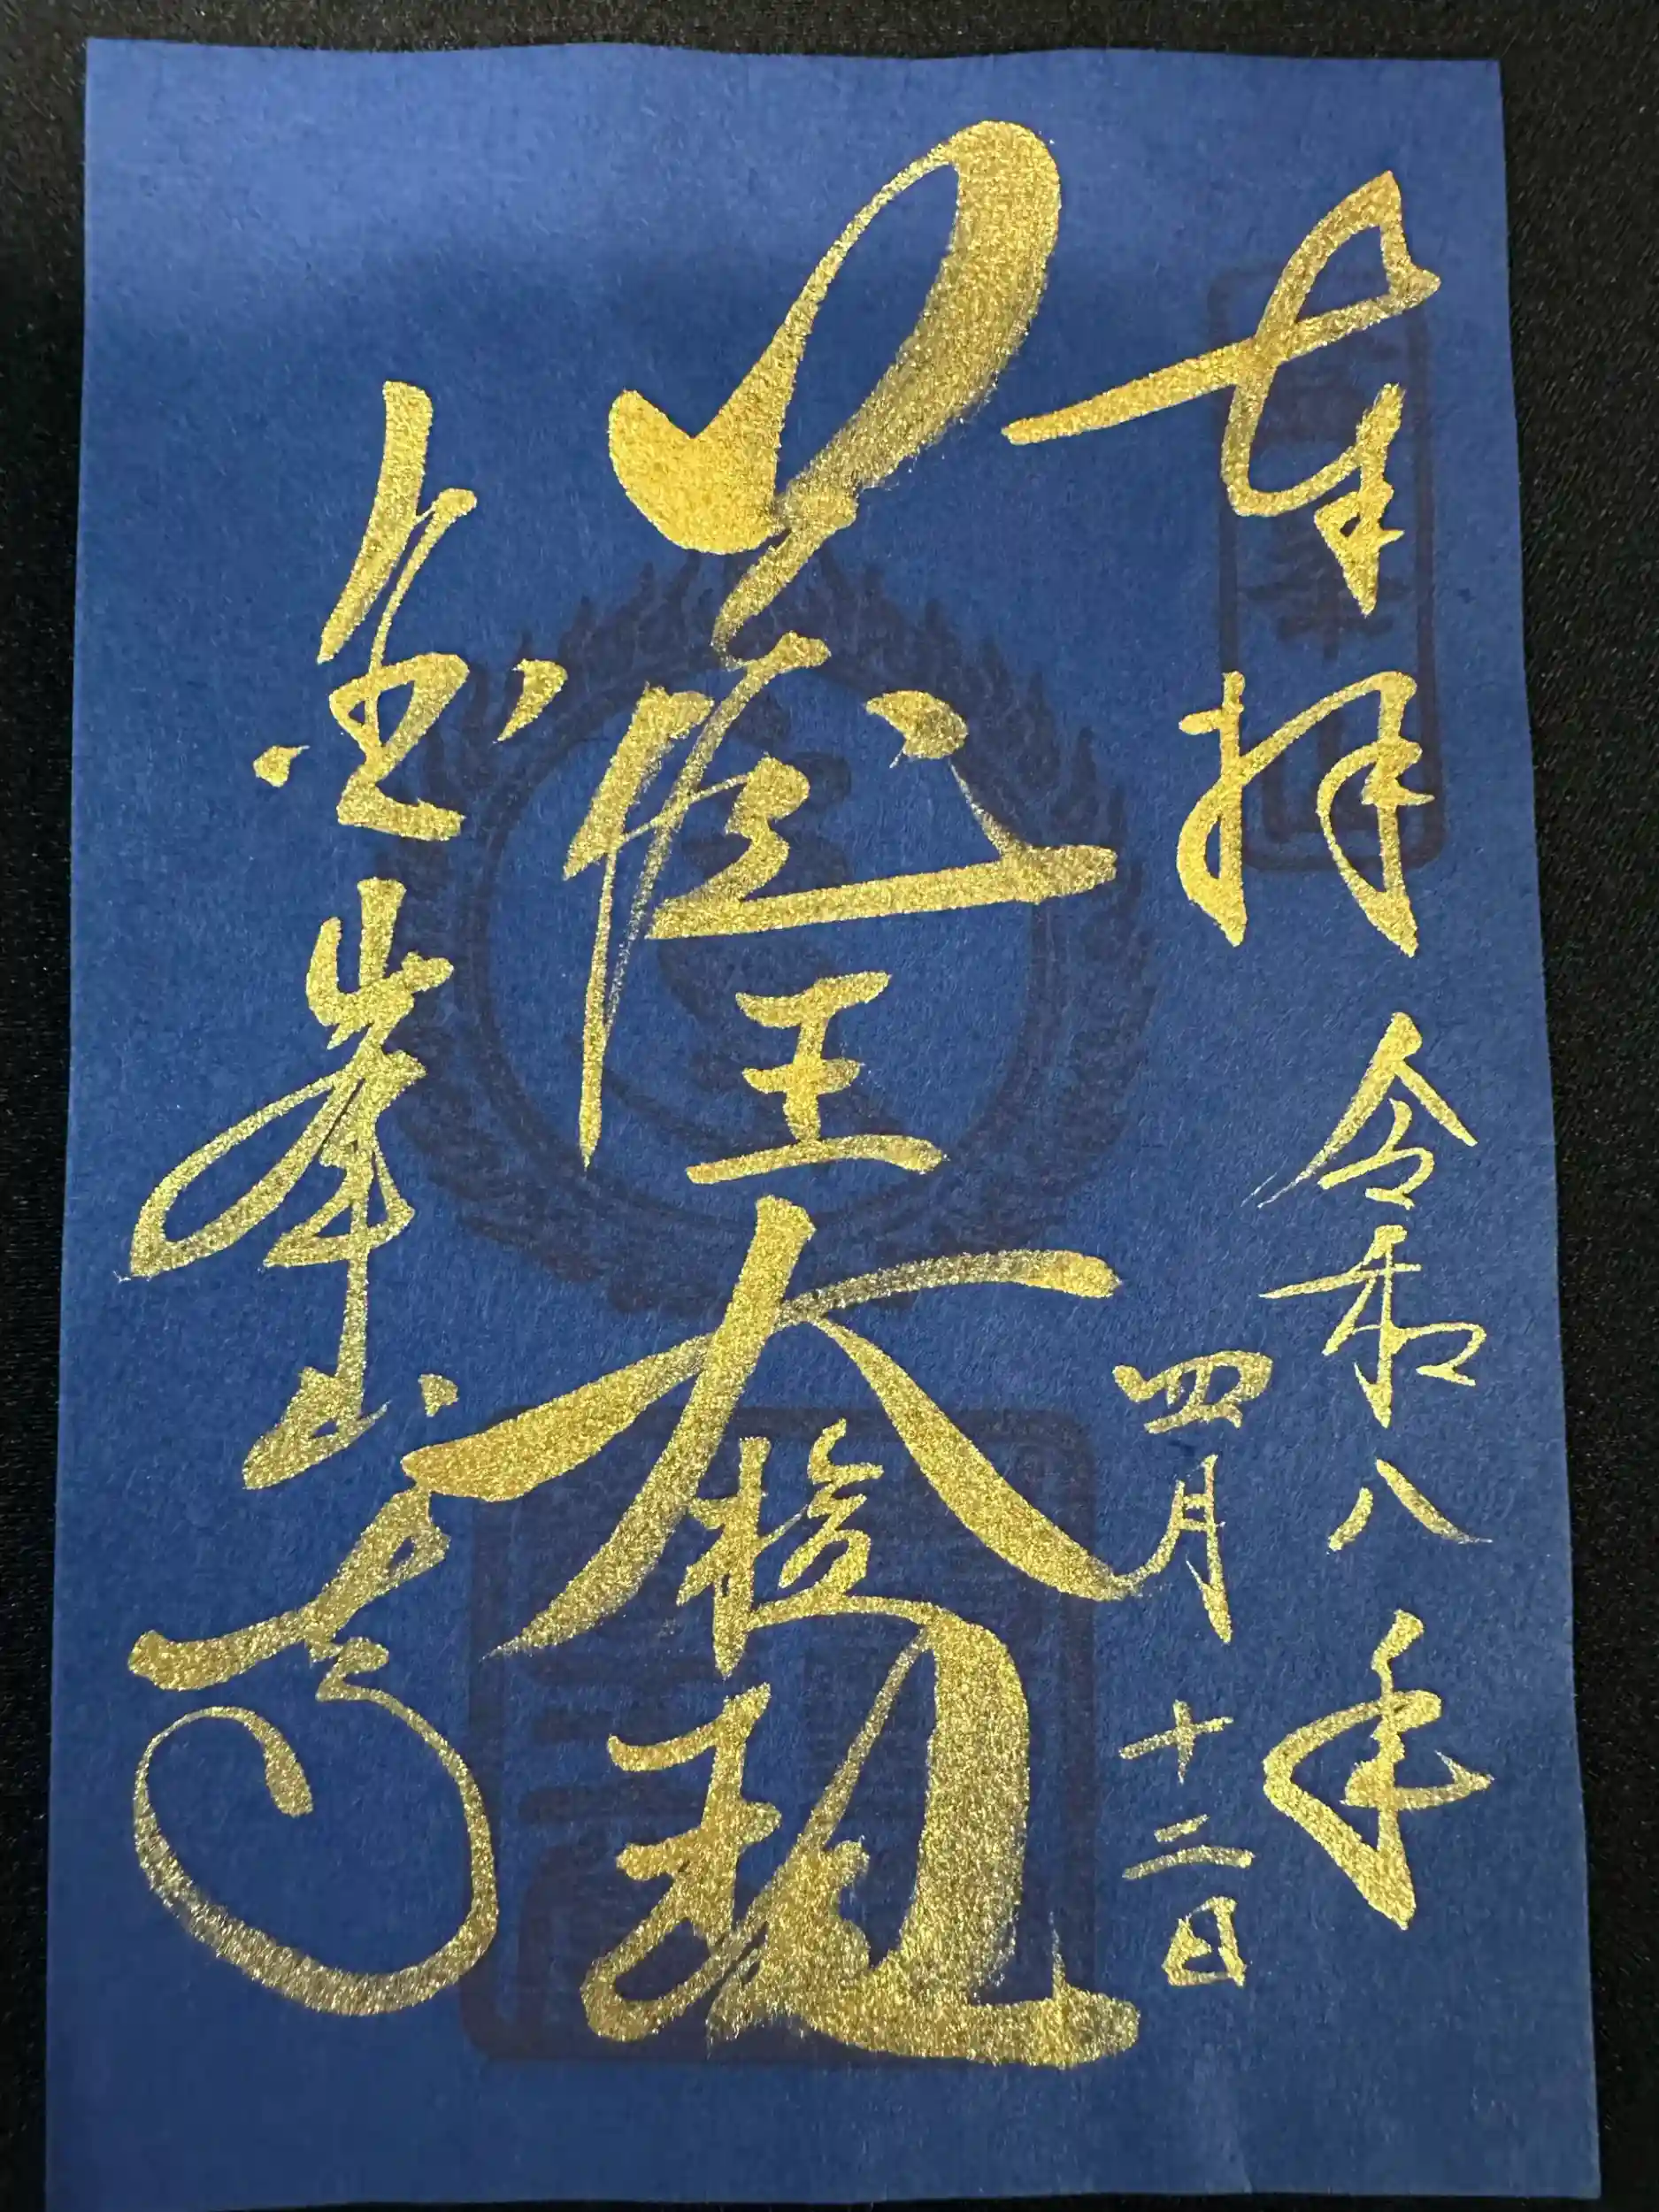 奉拝
令和八年
四月十二日
蔵王大権現
金峯山寺